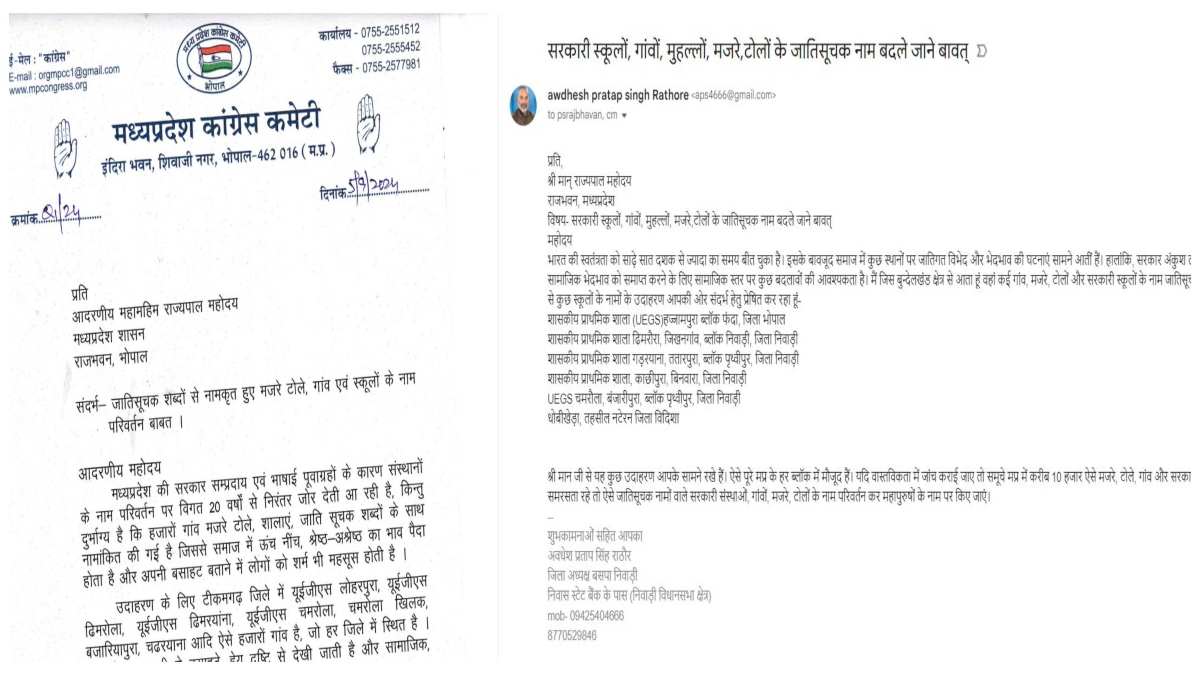 ई-मेल : "कांग्रेस"
E-mail : orgmpcc1@gmail.com
www.mpcongress.org
मध्य प्रदेश कांग्रेस कमेटी
भोपाल
कार्यालय - 0755-2551512
0755-2555452
फैक्स - 0755-2577981
मध्यप्रदेश कांग्रेस कमेटी
इंदिरा भवन, शिवाजी नगर, भोपाल-462 016 ( म.प्र. )
क्रमांक..../24
दिनांक 5/9/2024
प्रति
आदरणीय महामहिम राज्यपाल महोदय
मध्यप्रदेश शासन
राजभवन, भोपाल
संदर्भ– जातिसूचक शब्दों से नामकृत हुए मजरे टोले, गांव एवं स्कूलों के नाम
परिवर्तन बाबत ।
आदरणीय महोदय
मध्यप्रदेश की सरकार सम्प्रदाय एवं भाषाई पूवाग्रहों के कारण संस्थानों
के नाम परिवर्तन पर विगत 20 वर्षों से निरंतर जोर देती आ रही है, किन्तु
दुर्भाग्य है कि हजारों गांव मजरे टोले, शालाएं, जाति सूचक शब्दों के साथ
नामांकित की गई है जिससे समाज में ऊंच नींच, श्रेष्ठ–अश्रेष्ठ का भाव पैदा
होता है और अपनी बसाहट बताने में लोगों को शर्म भी महसूस होती है ।
उदाहरण के लिए टीकमगढ़ जिले में यूईजीएस लोहरपुरा, यूईजीएस
ढिमरोला, यूईजीएस ढिमरयांना, यूईजीएस चमरोला, चमरोला खिलक,
बजारियापुरा, चढरयाना आदि ऐसे हजारों गांव है, जो हर जिले में स्थित है ।
दृष्टि से देखी जाती है और सामाजिक,
सरकारी स्कूलों, गांवों, मुहल्लों, मजरे,टोलों के जातिसूचक नाम बदले जाने बावत्
awdhesh pratap singh Rathore <aps4666@gmail.com>
to psrajbhavan, cm
प्रति,
श्री मान् राज्यपाल महोदय
राजभवन, मध्यप्रदेश
विषय- सरकारी स्कूलों, गांवों, मुहल्लों, मजरे,टोलों के जातिसूचक नाम बदले जाने बावत्
महोदय
भारत की स्वतंत्रता को साढ़े सात दशक से ज्यादा का समय बीत चुका है। इसके बावजूद समाज में कुछ स्थानों पर जातिगत विभेद और भेदभाव की घटनाएं सामने आतीं हैं। हालांकि, सरकार अंकुश
सामाजिक भेदभाव को समाप्त करने के लिए सामाजिक स्तर पर कुछ बदलावों की आवश्यकता है। मैं जिस बुन्देलखंड क्षेत्र से आता हूं वहां कई गांव, मजरे, टोलों और सरकारी स्कूलों के नाम जातिसूच
से कुछ स्कूलों के नामों के उदाहरण आपकी ओर संदर्भ हेतु प्रेषित कर रहा हूं-
शासकीय प्राथमिक शाला (UEGS)हज्जामपुरा ब्लॉक फंदा, जिला भोपाल
शासकीय प्राथमिक शाला ढिमरौरा, जिखनगांव, ब्लॉक निवाड़ी, जिला निवाड़ी
शासकीय प्राथमिक शाला गड़रयाना, ततारपुरा, ब्लॉक पृथ्वीपुर, जिला निवाड़ी
शासकीय प्राथमिक शाला, काछीपुरा, बिनवारा, जिला निवाड़ी
UEGS चमरौला, बंजारीपुरा, ब्लॉक पृथ्वीपुर, जिला निवाड़ी
धोबीखेड़ा, तहसील नटेरन जिला विदिशा
श्री मान जी से यह कुछ उदाहरण आपके सामने रखे हैं। ऐसे पूरे मप्र के हर ब्लॉक में मौजूद हैं। यदि वास्तविकता में जांच कराई जाए तो समूचे मप्र में करीब 10 हजार ऐसे मजरे, टोले, गांव और सरका
समरसता रहे तो ऐसे जातिसूचक नामों वाले सरकारी संस्थाओं, गांवों, मजरे, टोलों के नाम परिवर्तन कर महापुरुषों के नाम पर किए जाएं।
--
शुभकामनाओं सहित आपका
अवधेश प्रताप सिंह राठौर
जिला अध्यक्ष बसपा निवाड़ी
निवास स्टेट बैंक के पास (निवाड़ी विधानसभा क्षेत्र)
mob- 09425404666
8770529846